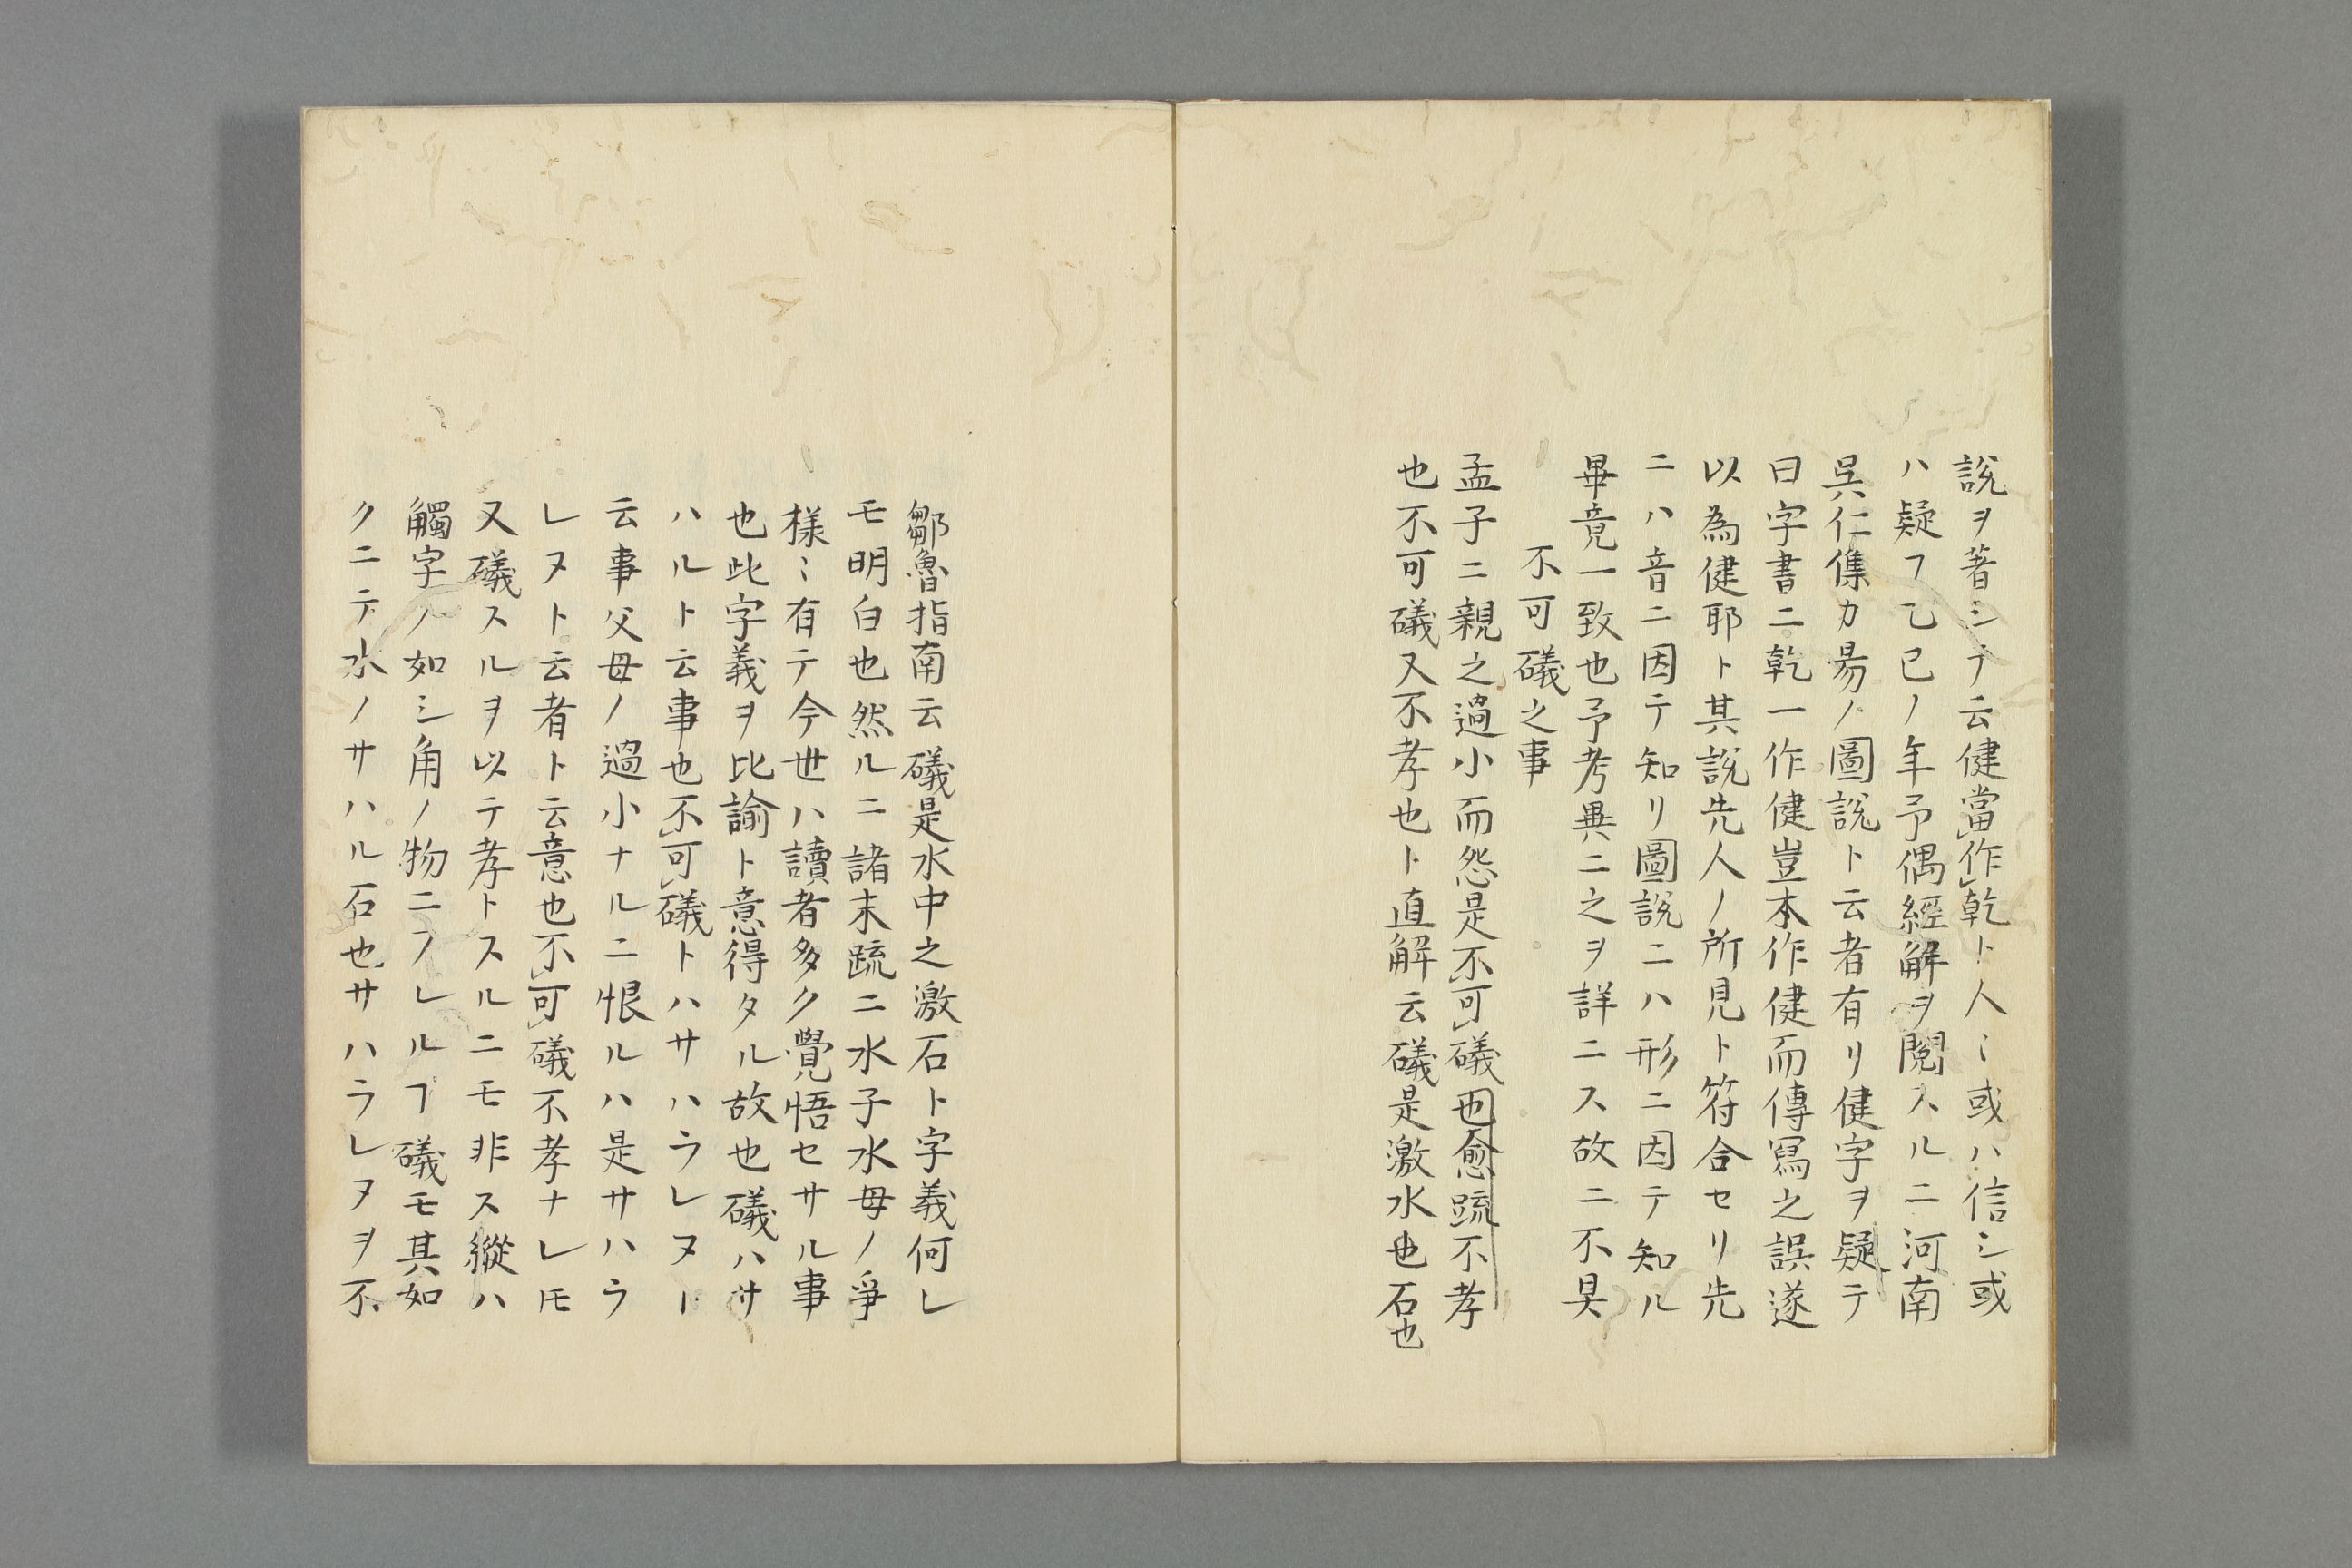 説ヲ著シテ云健當作乾ト人〻或ハ信シ或
ハ疑フ乙巳ノ年予偶經解ヲ閲スルニ河南
呉仁傑カ易ノ圖説ト云者有リ健字ヲ疑テ
曰字書ニ乾一作健豈本作健而傳冩之誤遂
以為健耶ト其説先人ノ所見ト符合セリ先
ニハ音ニ因テ知リ圖説ニハ形ニ因テ知ル
畢竟一致也予考異ニ之ヲ詳ニス故ニ不具
不可礒之事
孟子ニ親之過小而怨是不可礒也愈疏不孝
也不可礒又不孝也ト直解云礒是激水也石也
鄒魯指南云礒是水中之激石ト字義何レ
モ明白也然ルニ諸末疏ニ水子水母ノ爭
様〻有テ今世ハ讀者多ク覺悟セサル事
也此字義ヲ比諭ト意得タル故也礒ハサ
ハルト云事也不可礒トハサハラレヌト
云事父母ノ過小ナルニ恨ルハ是サハラ
レヌト云者ト云意也不可礒不孝ナレ𪜈
又礒スルヲ以テ孝トスルニモ非ス縱ハ
觸字ノ如シ角ノ物ニフレルヿ礒モ其如
クニテ水ノサハル石也サハラレヌヲ不